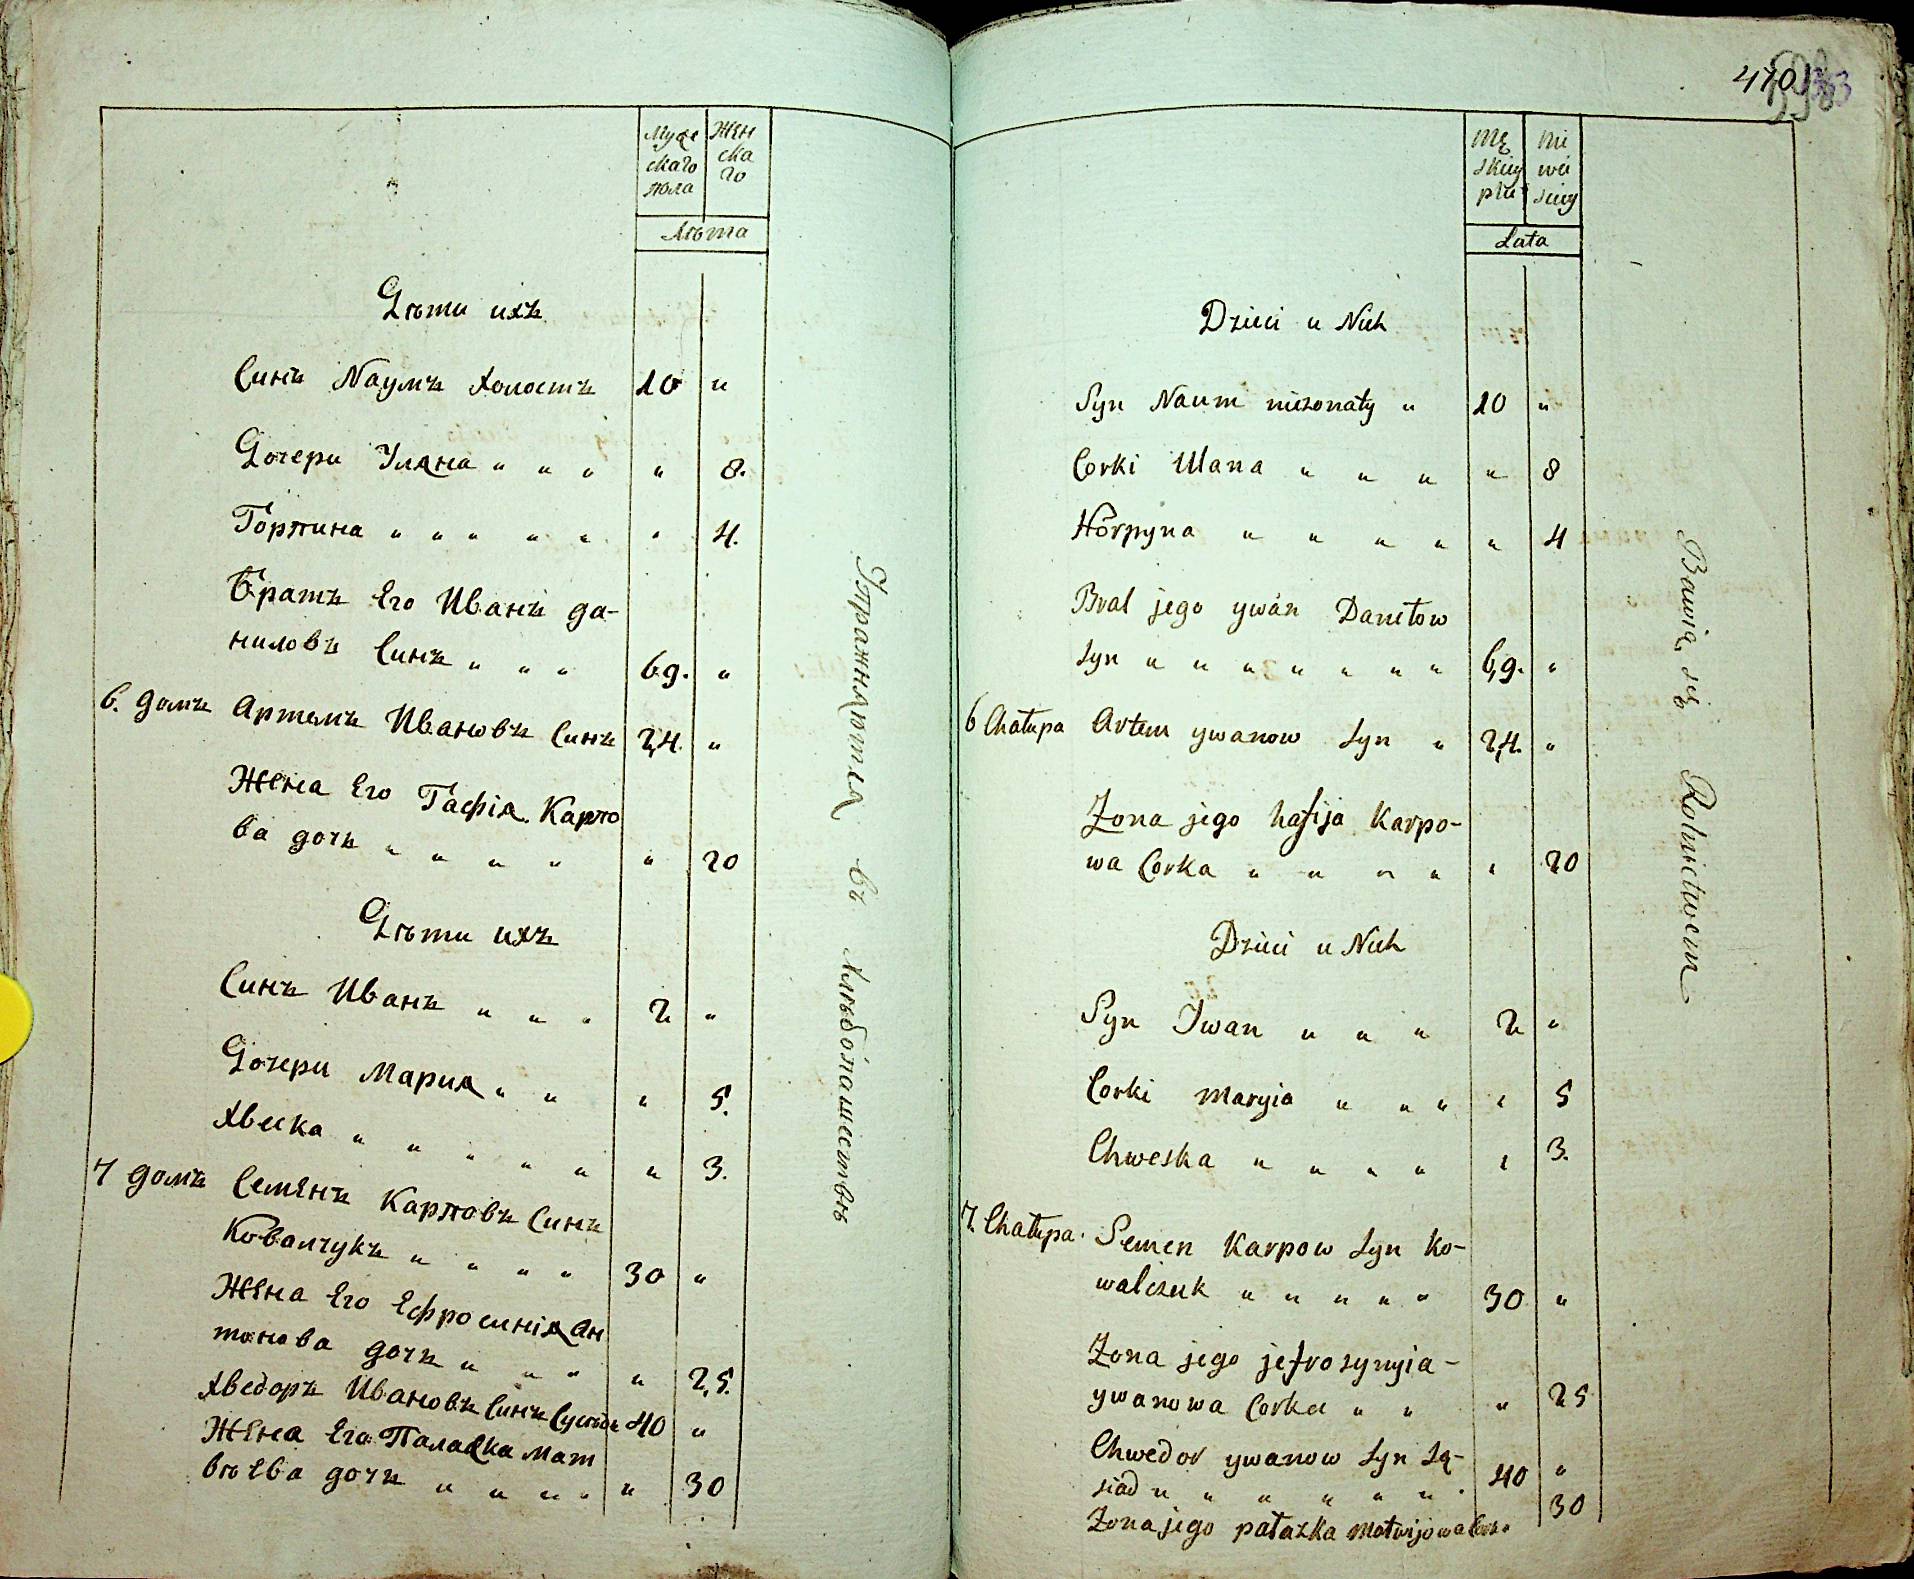 Муже
скаго
пола
Жен
ска
го
Лѣта
Дѣти ихъ
Синъ Наумъ холостъ 10 "
Дочери Уляна " " " " 8.
Горпина " " " " " " 4.
Братъ Его Иванъ да-
ниловъ Синъ " " " 69. "
6. домъ Артемъ Ивановъ Синъ 24. "
Жена Его Гафія Карпо
ва дочъ " " " " " 20
Дѣти ихъ
Синъ Иванъ " " " 2 "
Дочери Мария " " " 5.
Хвеска " " " " " " 3.
7 домъ Семенъ Карповъ Синъ
Ковалчукъ " " " " 30 "
Жена Его Ефросинія Ан
тонова дочъ " " " " 25.
Хведоръ Ивановъ Синъ Сусѣдъ 40 "
Жена Его Палажка Мат
вѣева дочъ " " " " " 30
Упражняются въ хлѣбопашествѣ
470
Mę
skiey
płci
Nie
wie
sciey
Lata
Dzieci u Nich
Syn Naum niezonaty " 10 "
Corki Ulana " " " " 8
Horpyna " " " " " 4
Brat jego ywan Daniłow
Syn " " " " " " " 69. "
6 Chałupa Artem ywanow Syn " 24. "
Zona jego hafija Karpo-
wa Corka " " " " " 20
Dzieci u Nich
Syn Iwan " " " 2 "
Corki Maryia " " " " 5
Chweska " " " " " 3.
7. Chałupa. Semen Karpow Syn Ko-
walczuk " " " " " 30 "
Zona jego jefrosynyia -
ywanowa Corka " " " 25
Chwedor ywanow Syn Są-
siad " " " " " " 40 "
Zona jego pałazka Matwijowa Corka 30
Bawią się Rolnictwem